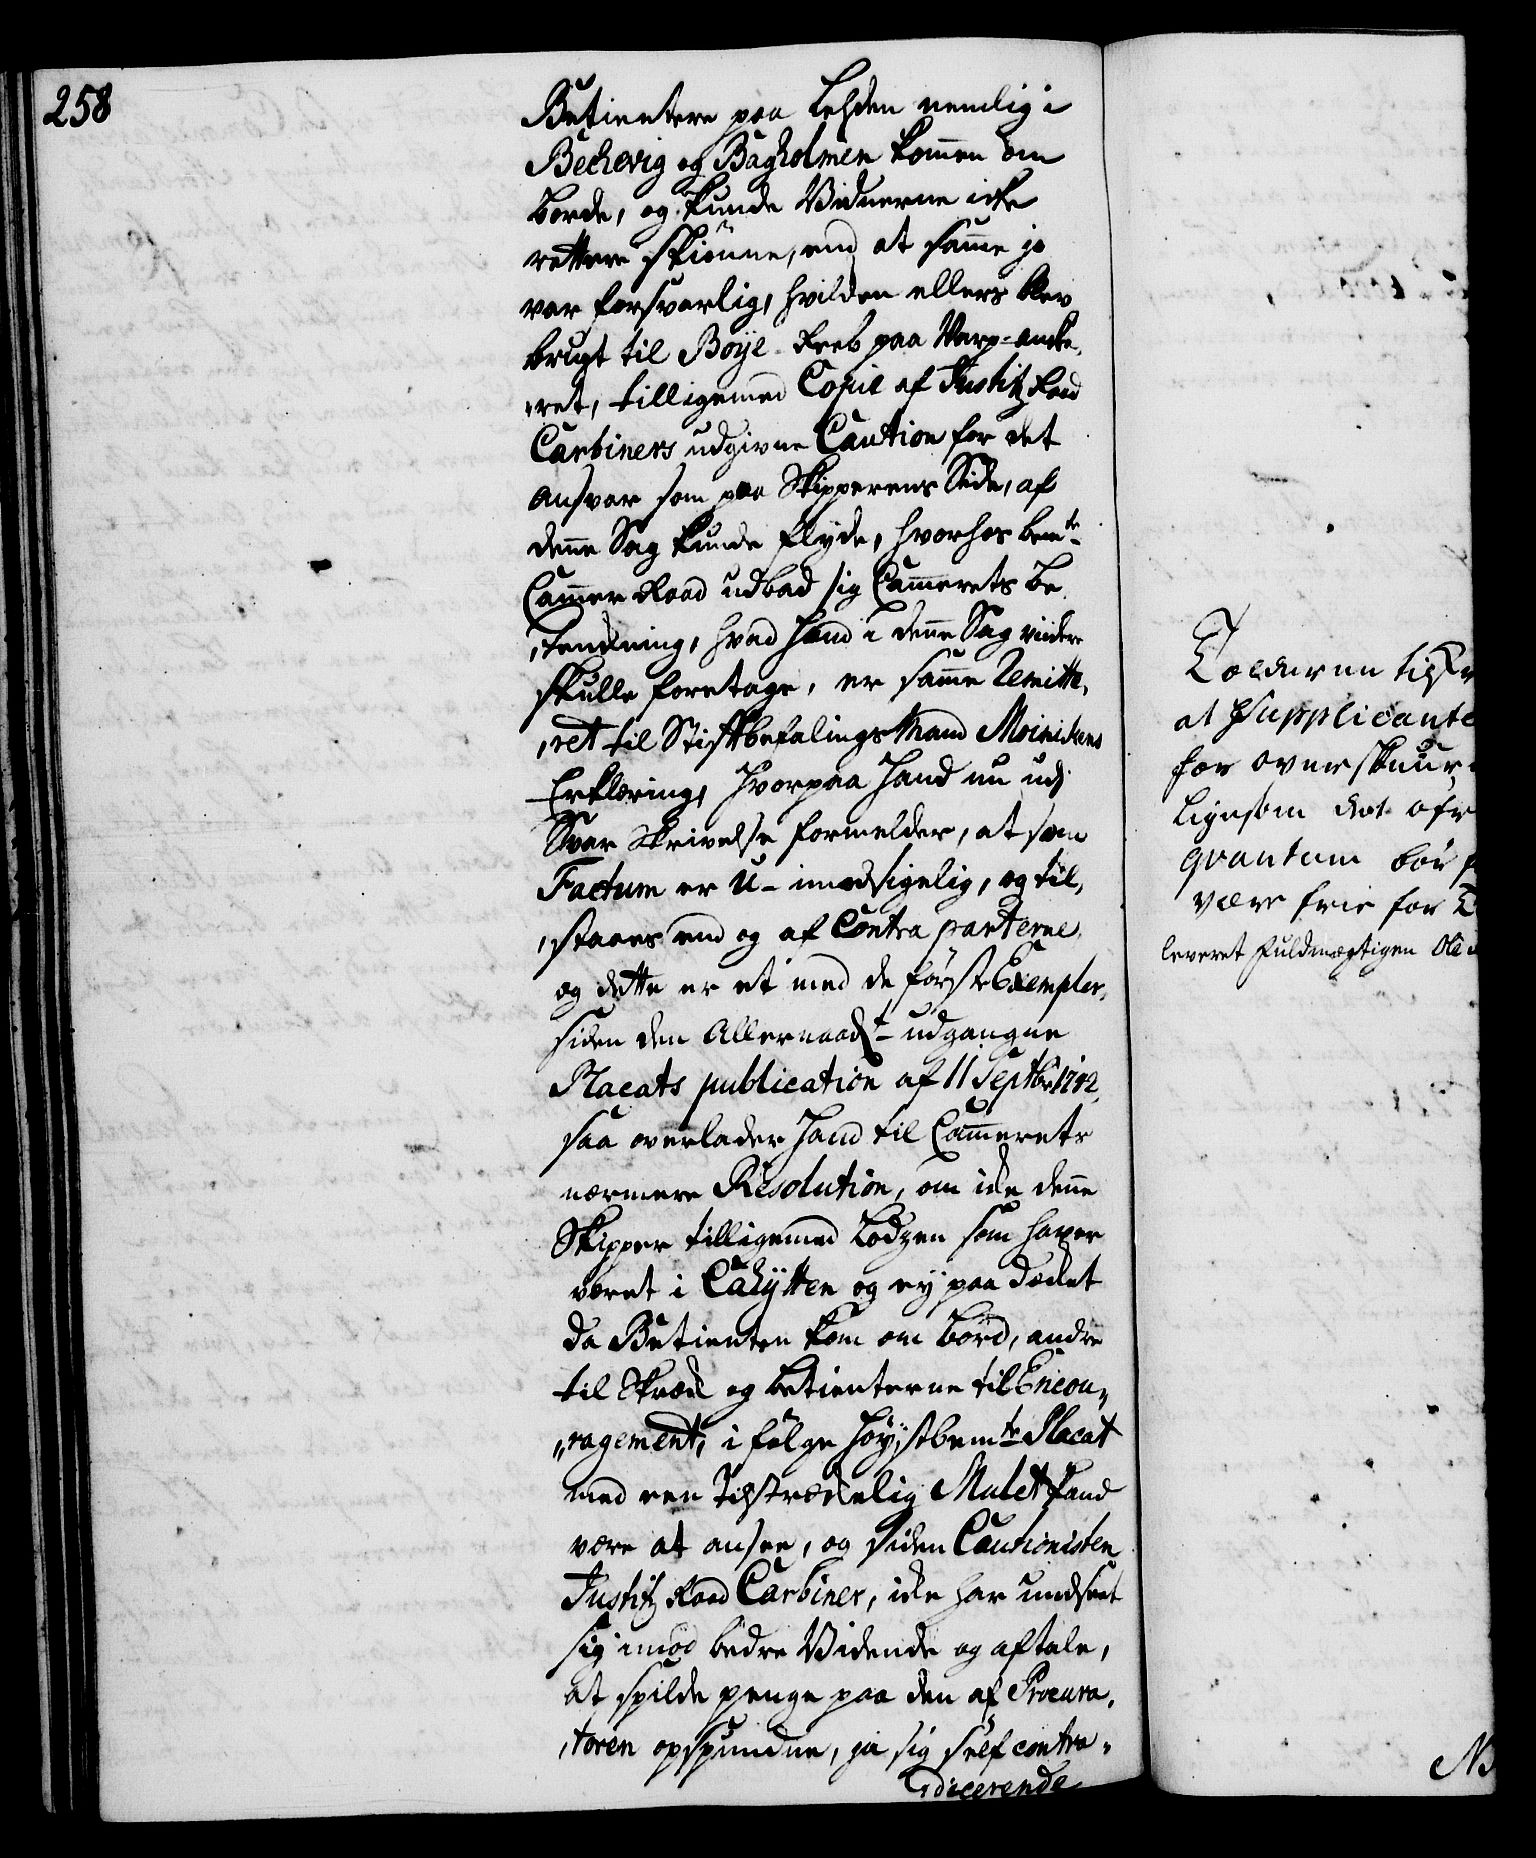 258
Betientere paa Leeden nemlig i
Bechevig og Bagholmen kom̄en om
borde, og kunde Vidnerne icke
rettere skiönne, end at sam̄e jo
var forsvarlig, hvilcken ellers blev
brugt til Böye-Reeb paa Varp-ancke,
,ret, tilligemed Copie af Justitz Raad
Carbiners udgivne Caution for det
Ansvar som paa Skipperens Side, af
den̄e Sag kunde flyde, hvorhos bemte
Cam̄er Raad udbad sig Cam̄erets Be,
,tænckning, hvad hand i den̄e Sag viidere
skulle foretage, er sam̄e Remitte,
,ret til Stiftbefalings Mand Moinichens
Erklæring, hvorpaa hand nu udj
Svar Skrivelse formelder, at som
Factum er U-imodsigelig, og til,
,staaes end og af Contra parterne,
og dette er et med de förste Exempler,
siden den Allernaadt udgangne
Placats publication af 11 Septbr 1742,
saa overlader hand til Cam̄erets
nærmere Resolution, om icke den̄e
Skipper tilligemed Lodzen som haver
været i Cahytten og ey paa Decket
da Betienten kom om bord, andre
til Skræk og Betienterne til Encou,,
,,ragement, i fölge höystbemte Placat
med een Tilstreckelig Mulct kand
være at ansee, og siden Cautionisten
Justitz Raad Carbiner, icke har undseet
sig imod bedre Vidende og aftale,
at spilde penge paa den af Procura,
,toren opspundne, ja sig self contra,,
,,dicerende
Tolderen til
at Supplicante
for overskuur
ligesom det
qvantum bör
være frie for
leveret Fuldmægtigen Ole